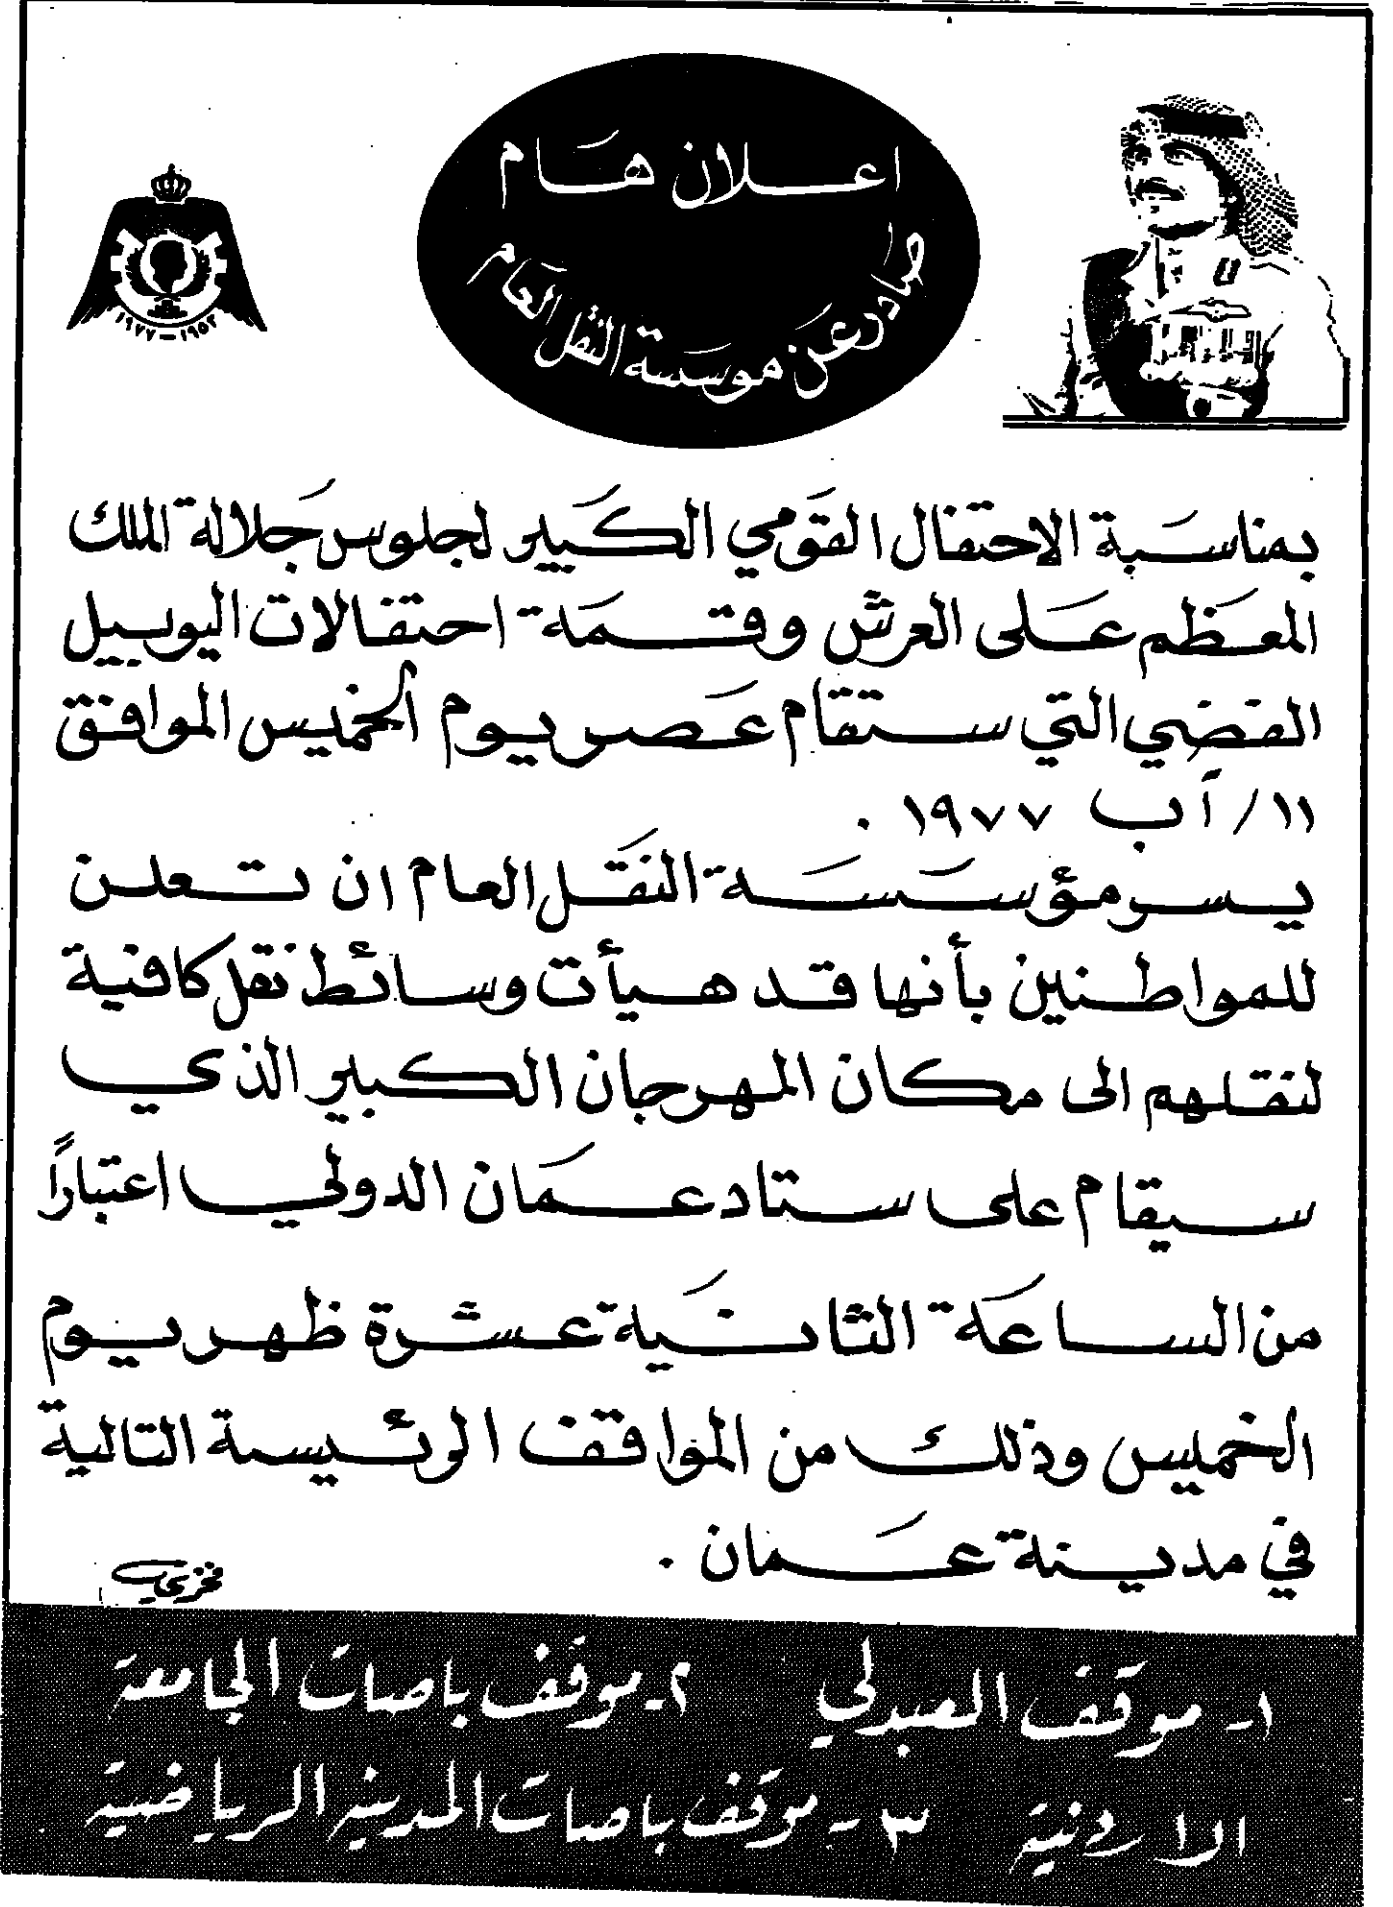 اعلان هام
صادر عن موسسة النقل العام
١٩٥٢ - ١٩٧٧
بمناسبة الاحتفال القومي الكبير لجلوس جلالة الملك
المعظم على العرش وقمة احتفالات اليوبيل
الفضي التي ستقام عصر يوم الخميس الموافق
١١/ آب ١٩٧٧ .
يسر مؤسسة النقل العام ان تعلن
للمواطنين بأنها قد هيأت وسائط نقل كافية
لنقلهم الى مكان المهرجان الكبير الذي
سيقام على ستاد عمان الدولي اعتباراً
من الساعة الثانية عشرة ظهر يوم
الخميس وذلك من المواقف الرئيسة التالية
في مدينة عمان .
١- موقف العبدلي ٢- موقف باصات الجامعة
الاردنية ٣- موقف باصات المدينة الرياضية